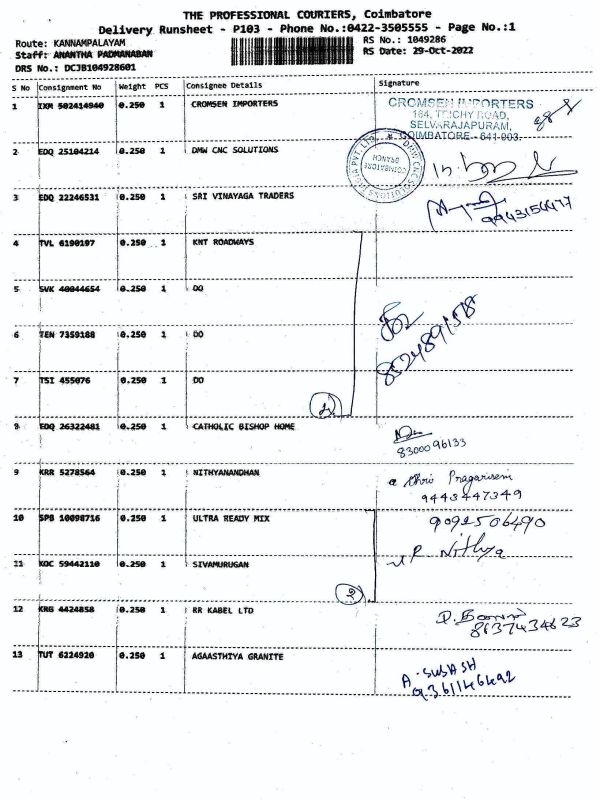 THE PROFESSIONAL COURIERS, Coimbatore
Delivery Runsheet - P103 - Phone No.:0422-3505555 - Page No.:1
Route: KANNAMPALAYAM
RS No.: 1049286
Staff: ANANTHA PADMANABAN
RS Date: 29-Oct-2022
DRS No.: DCJB104928601
S No Consignment No Weight PCS Consignee Details Signature
1 IXM 502414940 0.250 1 CROMSEN IMPORTERS
CROMSEN IMPORTERS
164, TRICHY ROAD,
SELVARAJAPURAM,
COIMBATORE - 641 003.
2 EDQ 25104214 0.250 1 DMW CNC SOLUTIONS
DMW CNC SOLUTIONS INDIA PVT. LTD
COIMBATORE
BRANCH
3 EDQ 22246531 0.250 1 SRI VINAYAGA TRADERS
4 TVL 6190197 0.250 1 KNT ROADWAYS
5 SVK 40044654 0.250 1 DO
6 TEN 7359188 0.250 1 DO
7 TSI 455076 0.250 1 DO
8 EDQ 26322481 0.250 1 CATHOLIC BISHOP HOME
8300096133
9 KRR 5278564 0.250 1 NITHYANANDHAN
9443447349
10 SPB 10098716 0.250 1 ULTRA READY MIX
9092506490
Nithya
11 KOC 59442110 0.250 1 SIVAMURUGAN
12 KRG 4424858 0.250 1 RR KABEL LTD
8637434623
13 TUT 6224920 0.250 1 AGAASTHIYA GRANITE
A. SUBASH